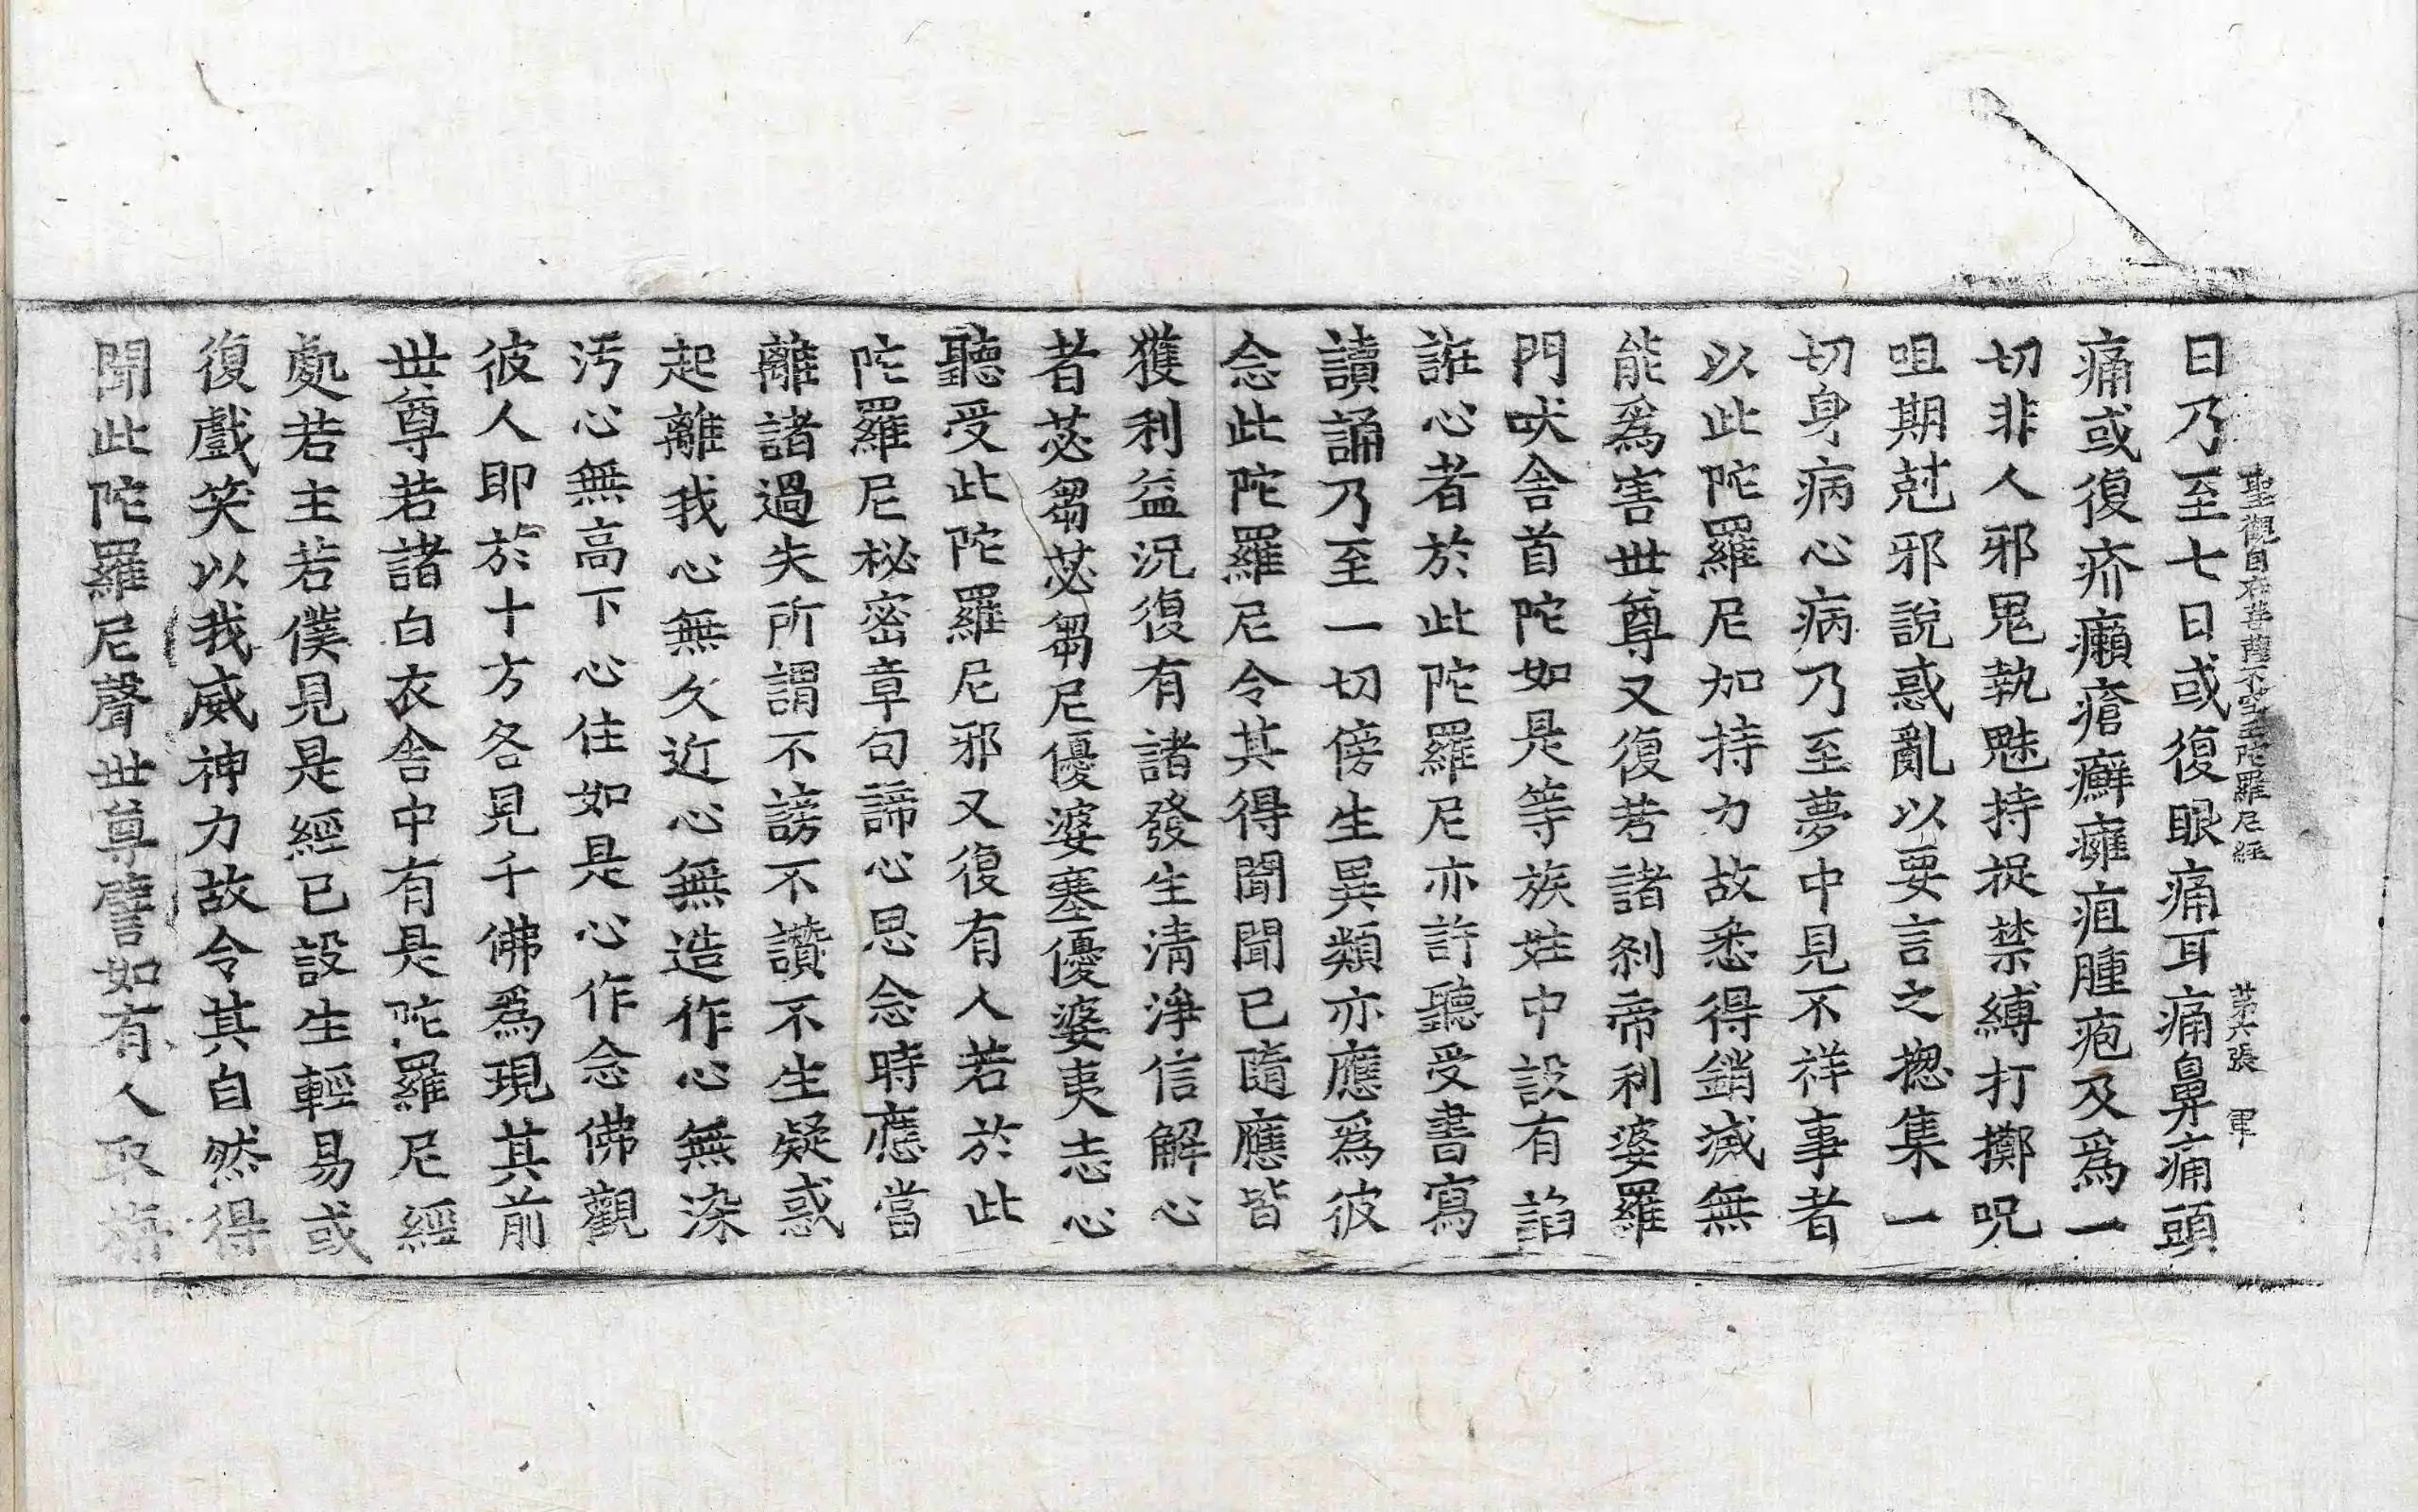 聖觀自在菩薩不空王陀羅尼經 第六張 軍
日乃至七日或復眼痛耳痛鼻痛頭
痛或復疥癩瘡癬癰疽腫疱及爲一
切非人邪鬼執魅持捉禁縛打擲呪
咀期尅邪說惑亂以要言之揔集一
切身病心病乃至夢中見不祥事者
以此陀羅尼加持力故悉得銷滅無
能爲害世尊又復若諸剎帝利婆羅
門吠舍首陀如是等族姓中設有諂
誑心者於此陀羅尼亦許聽受書寫
讀誦乃至一切傍生異類亦應爲彼
念此陀羅尼令其得聞聞已隨應皆
獲利益況復有諸發生清淨信解心
者苾芻苾芻尼優婆塞優婆夷志心
聽受此陀羅尼邪又復有人若於此
陀羅尼秘密章句諦心思念時應當
離諸過失所謂不謗不讚不生疑惑
起離我心無久近心無造作心無染
汚心無高下心住如是心作念佛觀
彼人即於十方各見千佛爲現其前
世尊若諸白衣舍中有是陀羅尼經
處若主若僕見是經已設生輕易或
復戲笑以我威神力故令其自然得
聞此陀羅尼聲世尊譬如有人取旃